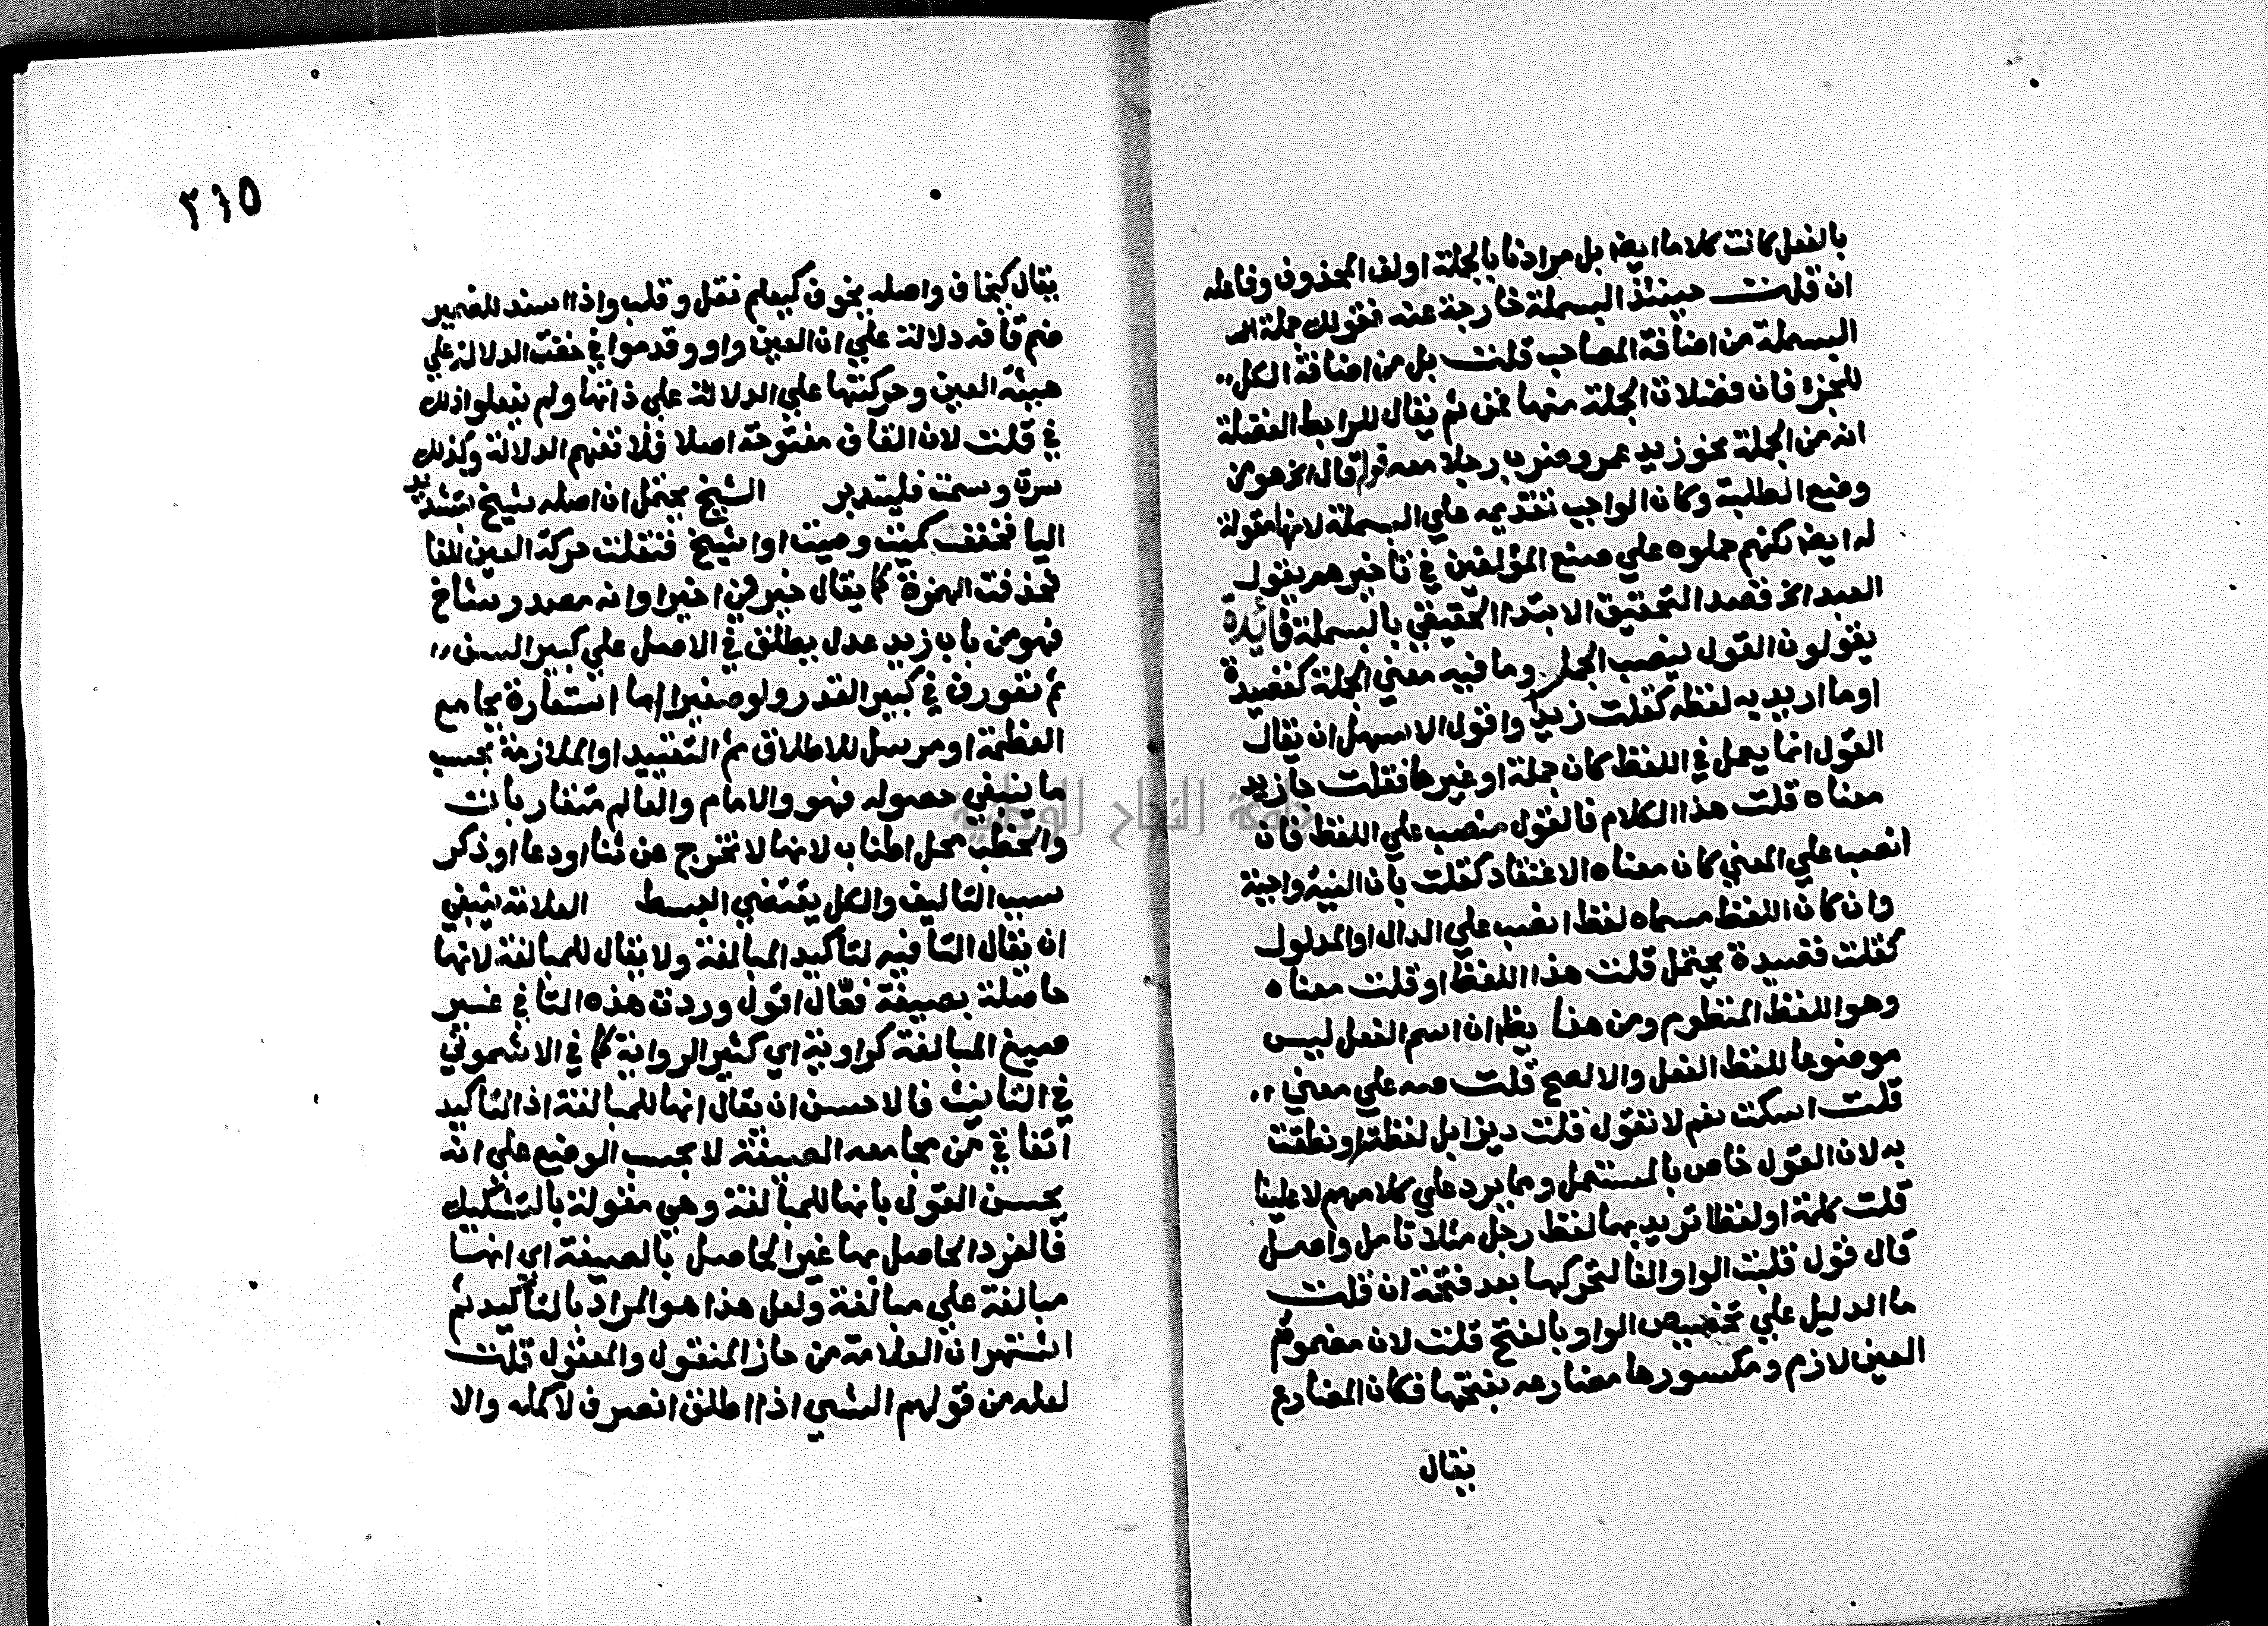 بالفعل كانت كلاما ايضا بل مرادنا بالجملة اولف المحذوف وفاعله
ان قلت حينئذ البسملة خارجة عنه فقولك جملة
البسملة من اضافة المصاحب قلت بل من اضافة الكل
للجزء فان فضلات الجملة منها فمن ثم يقال للرابط الفضلة
انه من الجملة نحو زيد عمرو ضرب رجلا معه قوله قال الخ هو من
وضع الطلبة وكان الواجب تقديمه علي البسملة لانها مقولة
له ايضا لكنهم حملوه علي صنع المؤلفين في تاخيرهم يقول
العبد الخ قصد التحقيق الابتدا الحقيقي بالبسملة فائدة
يقولون القول ينصب الجمل وما فيه معني الجملة كقصيدة
او ما اريد به لفظه كقلت زيد واقول الاسهل ان يقال
القول انما يعمل في اللفظ كان جملة او غيرها فقلت جا زيد
معناه قلت هذا الكلام فالقول منصب علي اللفظ فان
انصب علي المعني كان معناه الاعتقاد كقلت بان النية واجبة
وان كان اللفظ مسماه لفظ انصب علي الدال او المدلول
كقلت قصيدة يحتمل قلت هذا اللفظ او قلت معناه
وهو اللفظ المنظوم ومن هنا يظهر ان اسم الفعل ليس
موضوعا للفظ الفعل والا لصح قلت صه علي معني
قلت اسكت نعم لا تقول قلت ديزا بل لفظت او نطقت
به لان القول خاص بالمستعمل ومما يرد علي كلامهم لا علينا
قلت كلمة او لفظا تريد بها لفظ رجل مثلا تامل واصل
قال قول قلبت الواو الفا لتحركها بعد فتحة ان قلت
ما الدليل علي تخصيص الواو بالفتح قلت لان مضموم
العين لازم ومكسورها مضارعه بفتحها فكان المضارع
يقال
٣١٥
يقال كيخاف واصله يخوف كيعلم نقل وقلب واذا اسند للضمير
ضم قافه دلالة علي ان العين واو وقدموا في خفت الدلالة علي
هيئة العين وحركتها علي الدلالة علي ذاتها ولم يفعلوا ذلك
في قلت لان القاف مفتوحة اصلا فلا تفهم الدلالة وكذلك
سرت وسمت فليتدبر الشيخ يحتمل ان اصله شيخ بتشديد
اليا فخففت كميت وصيت او اشيخ فنقلت حركة العين للفا
فحذفت الهمزة كما يقال خير في اخير او انه مصدر شاخ
فهو من باب زيد عدل يطلق في الاصل علي كبير السن
ثم تعورف في كبير القدر ولو صغيرا اما استعارة بجامع
العظمة او مرسل للاطلاق ثم التقييد او الملازمة بحسب
ما ينبغي حصوله فهو والامام والعالم متقاربات
والخطب محل اطناب لانها لا تخرج عن ثنا او دعا او ذكر
سبب التاليف والكل يقتضي البسط العلامة ينبغي
ان يقال التا فيه لتاكيد المبالغة ولا يقال للمبالغة لانها
حاصلة بصيغة فعال اقول وردت هذه التا في غير
صيغ المبالغة كراوية اي كثير الرواية كما في الاشموني
في التانيث فالاحسن ان يقال انها للمبالغة اذ التاكيد
اتفاقي من مجامعه الصيغة لا بحسب الوضع علي انه
يحسن القول بانها للمبالغة وهي مقولة بالتشكيك
فالفرد الحاصل بها غير الحاصل بالصيغة اي انها
مبالغة علي مبالغة ولعل هذا هو المراد بالتاكيد ثم
اشتهر ان العلامة من حاز المنقول والمعقول قلت
لعله من قولهم الشي اذا اطلق انصرف لاكمله والا